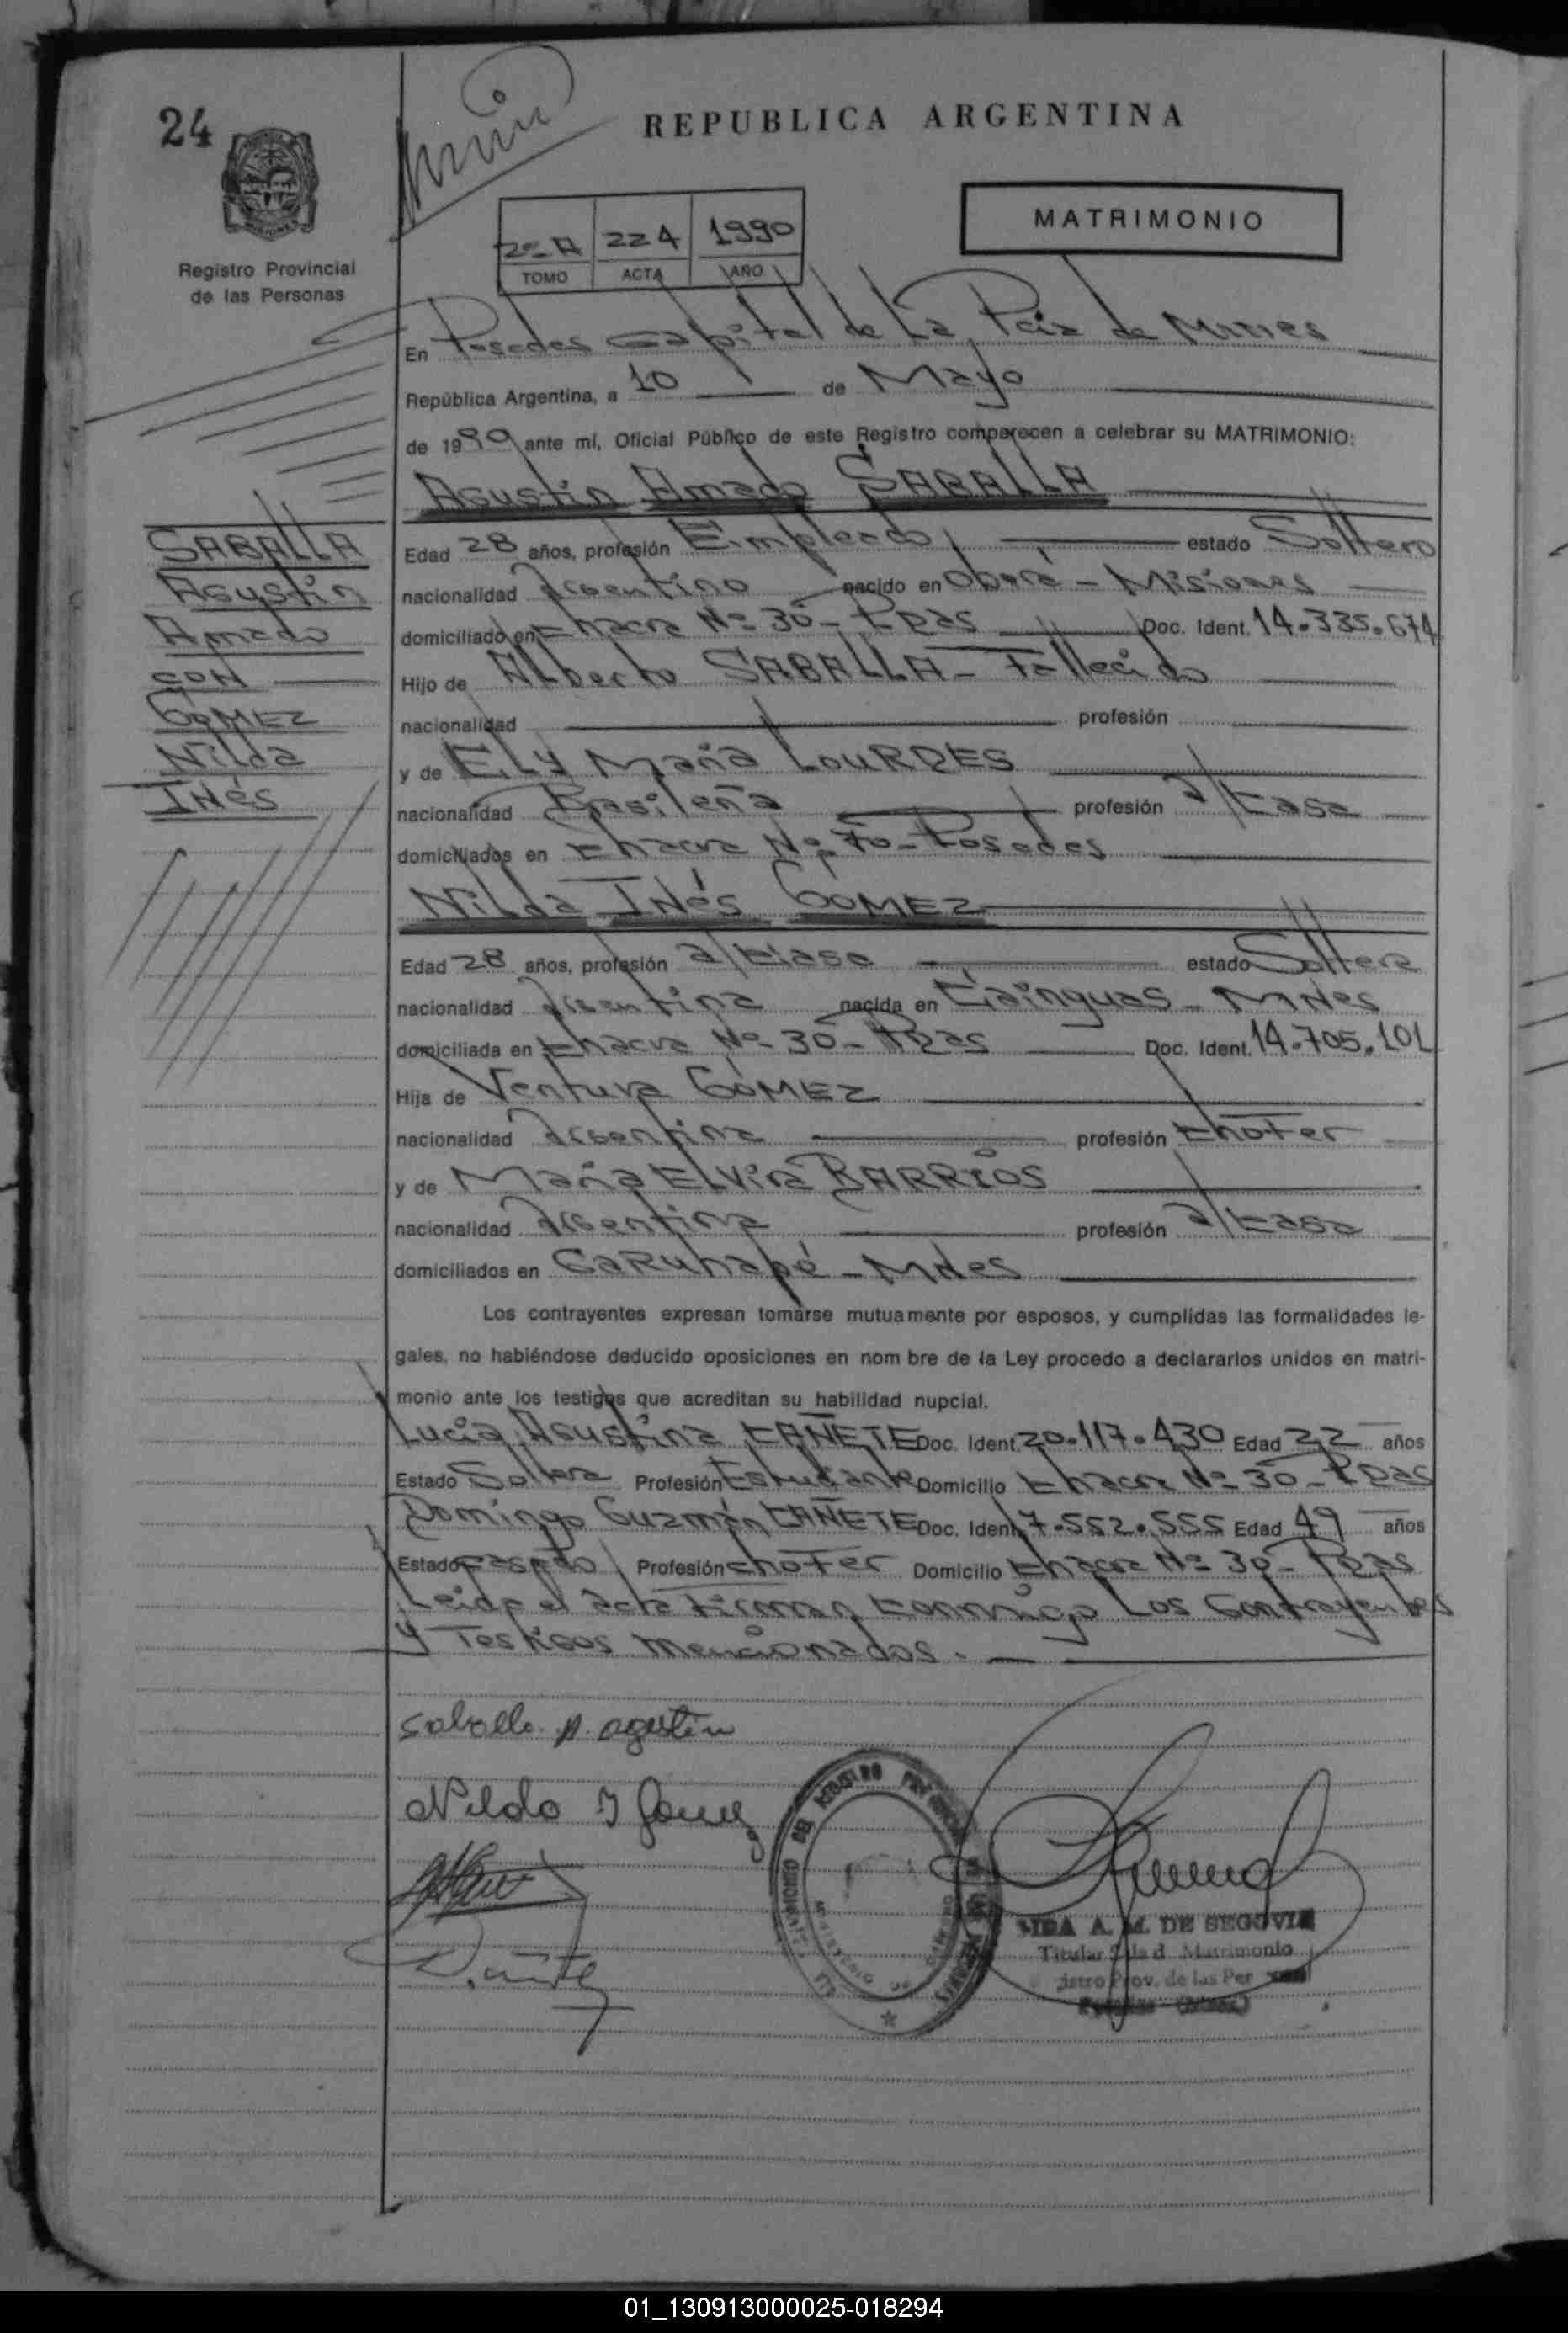 24
REPUBLICA ARGENTINA
MATRIMONIO
Registro Provincial
de las Personas
2º A 224 1990
TOMO ACTA AÑO
En Posadas Capital de La Pcia de Mnes
República Argentina, a 10 de Mayo
de 1990 ante mí, Oficial Público de este Registro comparecen a celebrar su MATRIMONIO:
Agustin Amado SABALLA
SABALLA
Agustin
Amado
CON
GOMEZ
Nilda
Inés
Edad 28 años, profesión Empleado estado Soltero
nacionalidad Argentino nacido en Oberá - Misiones
domiciliado en Chacra Nº 30 - Pdas Doc. Ident. 14.335.674
Hijo de Alberto SABALLA - Fallecido
nacionalidad profesión
y de Ely Maria LOURDES
nacionalidad Brasileña profesión a/casa
domiciliados en Chacra Nº 70 - Posadas
Nilda Inés GOMEZ
Edad 28 años, profesión a/casa estado Soltera
nacionalidad Argentina nacida en Cainguas - Mnes
domiciliada en Chacra Nº 30 - Pdas Doc. Ident. 14.705.101
Hija de Ventura GOMEZ
nacionalidad Argentina profesión chofer
y de Maria Elvira BARRIOS
nacionalidad Argentina profesión a/casa
domiciliados en Caruhapé - Mnes
Los contrayentes expresan tomarse mutuamente por esposos, y cumplidas las formalidades le-
gales, no habiéndose deducido oposiciones en nom bre de la Ley procedo a declararlos unidos en matri-
monio ante los testigos que acreditan su habilidad nupcial.
Lucia Agustina CAÑETE Doc. Ident. 20.117.430 Edad 22 años
Estado Soltera Profesión Estudiante Domicilio Chacra Nº 30 - Pdas
Domingo Guzmán CAÑETE Doc. Ident. 7.552.555 Edad 49 años
Estado casado Profesión chofer Domicilio Chacra Nº 30 - Pdas
Leida el acta Firman conmigo Los Contrayentes
y Testigos mencionados.
Saballa A. agustin
Nilda I Gomez
A. M. DE SEGOVIA
Titular Sala d Matrimonio
istro Prov. de las Per
01_130913000025-018294